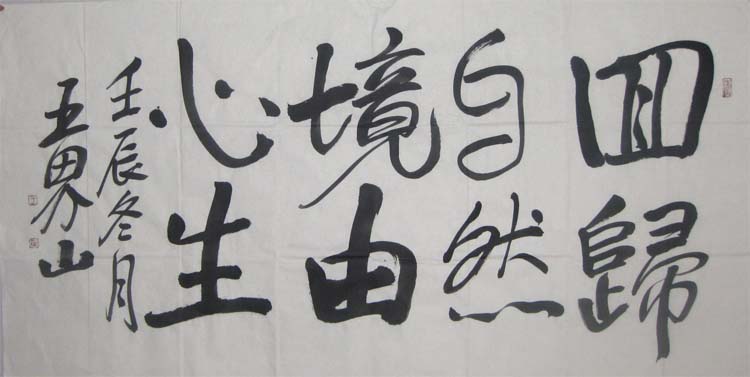 回歸
自然
境由
心生
壬辰冬月
王界山